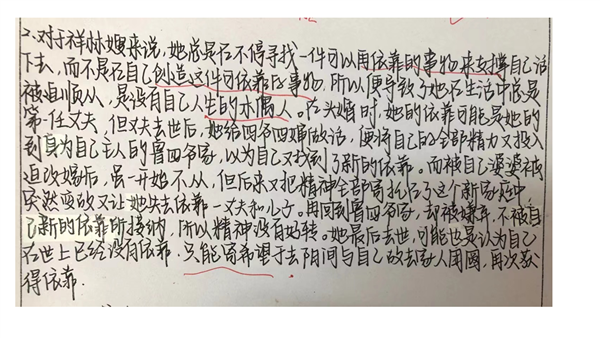 2.对于祥林嫂来说,她总是在不停寻找一件可以用依靠的事物来支撑自己活
下去,而不是在自己创造这件可依靠的事物,所以便导致了她在生活中总是
被迫顺从,是没有自己人生的木偶人。在头婚时,她的依靠可能是她的
第一任丈夫,但丈夫去世后,她给四爷四婶做活,便将自己的全部精力又投入
到身为自己主人的鲁四爷家,以为自己又找到了新的依靠。而被自己婆婆被
迫改嫁后,虽一开始不从,但后来又把精神全部寄托在了这个新家庭中
突然变故又让她失去依靠—丈夫和儿子。再回到鲁四爷家,却被嫌弃,不被自
己新的依靠所接纳,所以精神没有好转。她最后去世,可能也是认为自己
在世上已经没有依靠,只能寄希望于去阴间与自己故去家人团圆,再次获
得依靠.